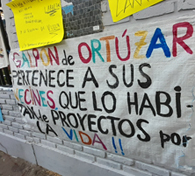 GALPÓN de ORTÚZAR
PERTENECE A SUS
VECINES QUE LO HABI
TAN de PROYECTOS por
LA VIDA!!